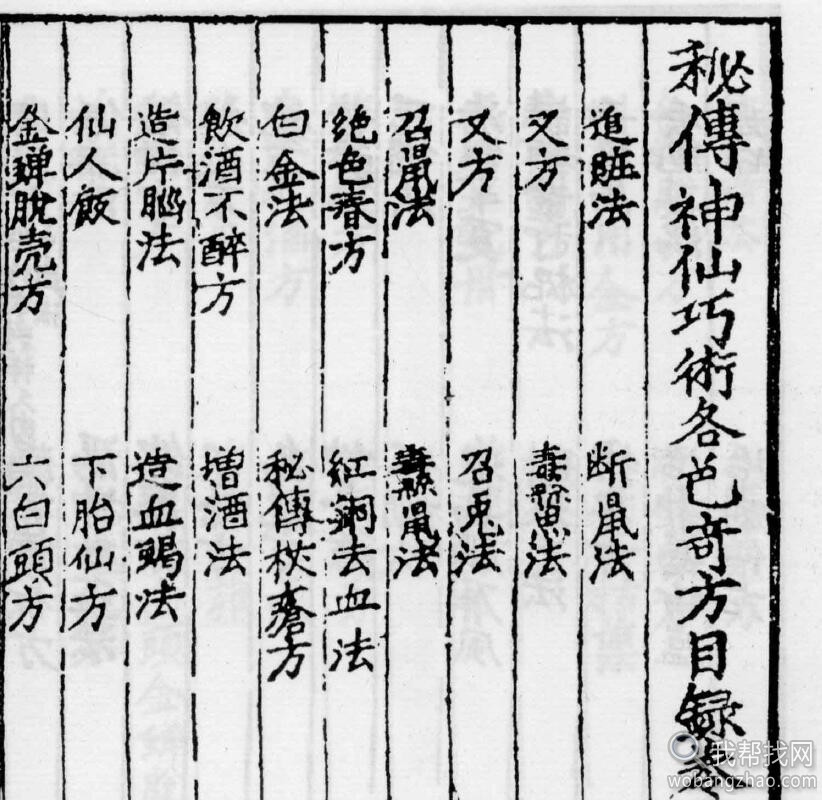 秘傳神仙巧術各色奇方目録
追賍法 断鼠法
又方 毒 法
又方 召兎法
召鼠法 毒 鼠法
绝色春方 紅銅去血法
白金法 秘傳杖瘡方
飲酒不醉方 増酒法
造片腦法 造血蝎法
仙人飯 下胎仙方
金蟬脫壳方 六白頭方
我帮找网
wobangzhao.com